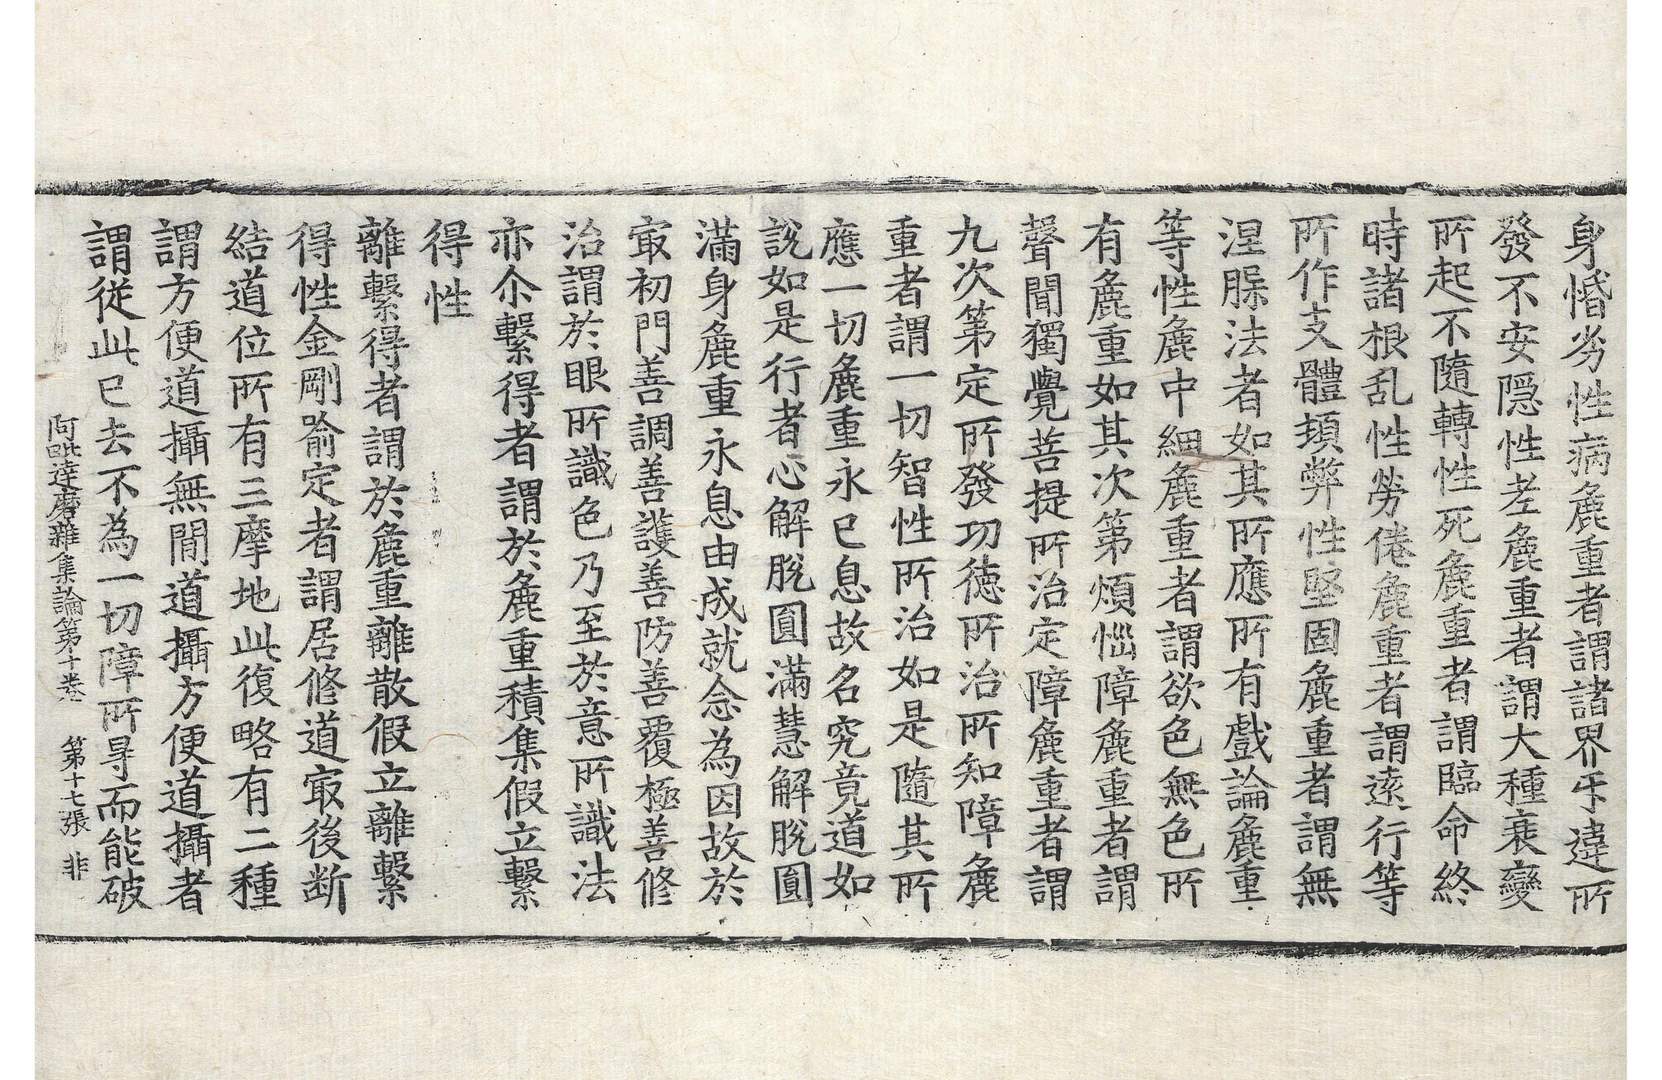 身惛劣性病麁重者謂諸界乖違所
發不安隠性老麁重者謂大種衰變
所起不隨轉性死麁重者謂臨命終
時諸根乱性勞倦麁重者謂遠行等
所作支體頓弊性堅固麁重者謂無
涅槃法者如其所應所有戲論麁重
等性麁中細麁重者謂欲色無色所
有麁重如其次第煩惱障麁重者謂
聲聞獨覺菩提所治定障麁重者謂
九次第定所發功德所治所知障麁
重者謂一切智性所治如是隨其所
應一切麁重永已息故名究竟道如
說如是行者心解脫圓滿慧解脫圓
滿身麁重永息由成就念為因故於
㝡初門善調善護善防善覆極善修
治謂於眼所識色乃至於意所識法
亦尒繫得者謂於麁重積集假立繫
得性
離繫得者謂於麁重離散假立離繫
得性金剛喻定者謂居修道㝡後断
結道位所有三摩地此復略有二種
謂方便道攝無間道攝方便道攝者
謂従此已去不為一切障所㝵而能破
阿毗達磨雜集論第十卷 第十七張 非